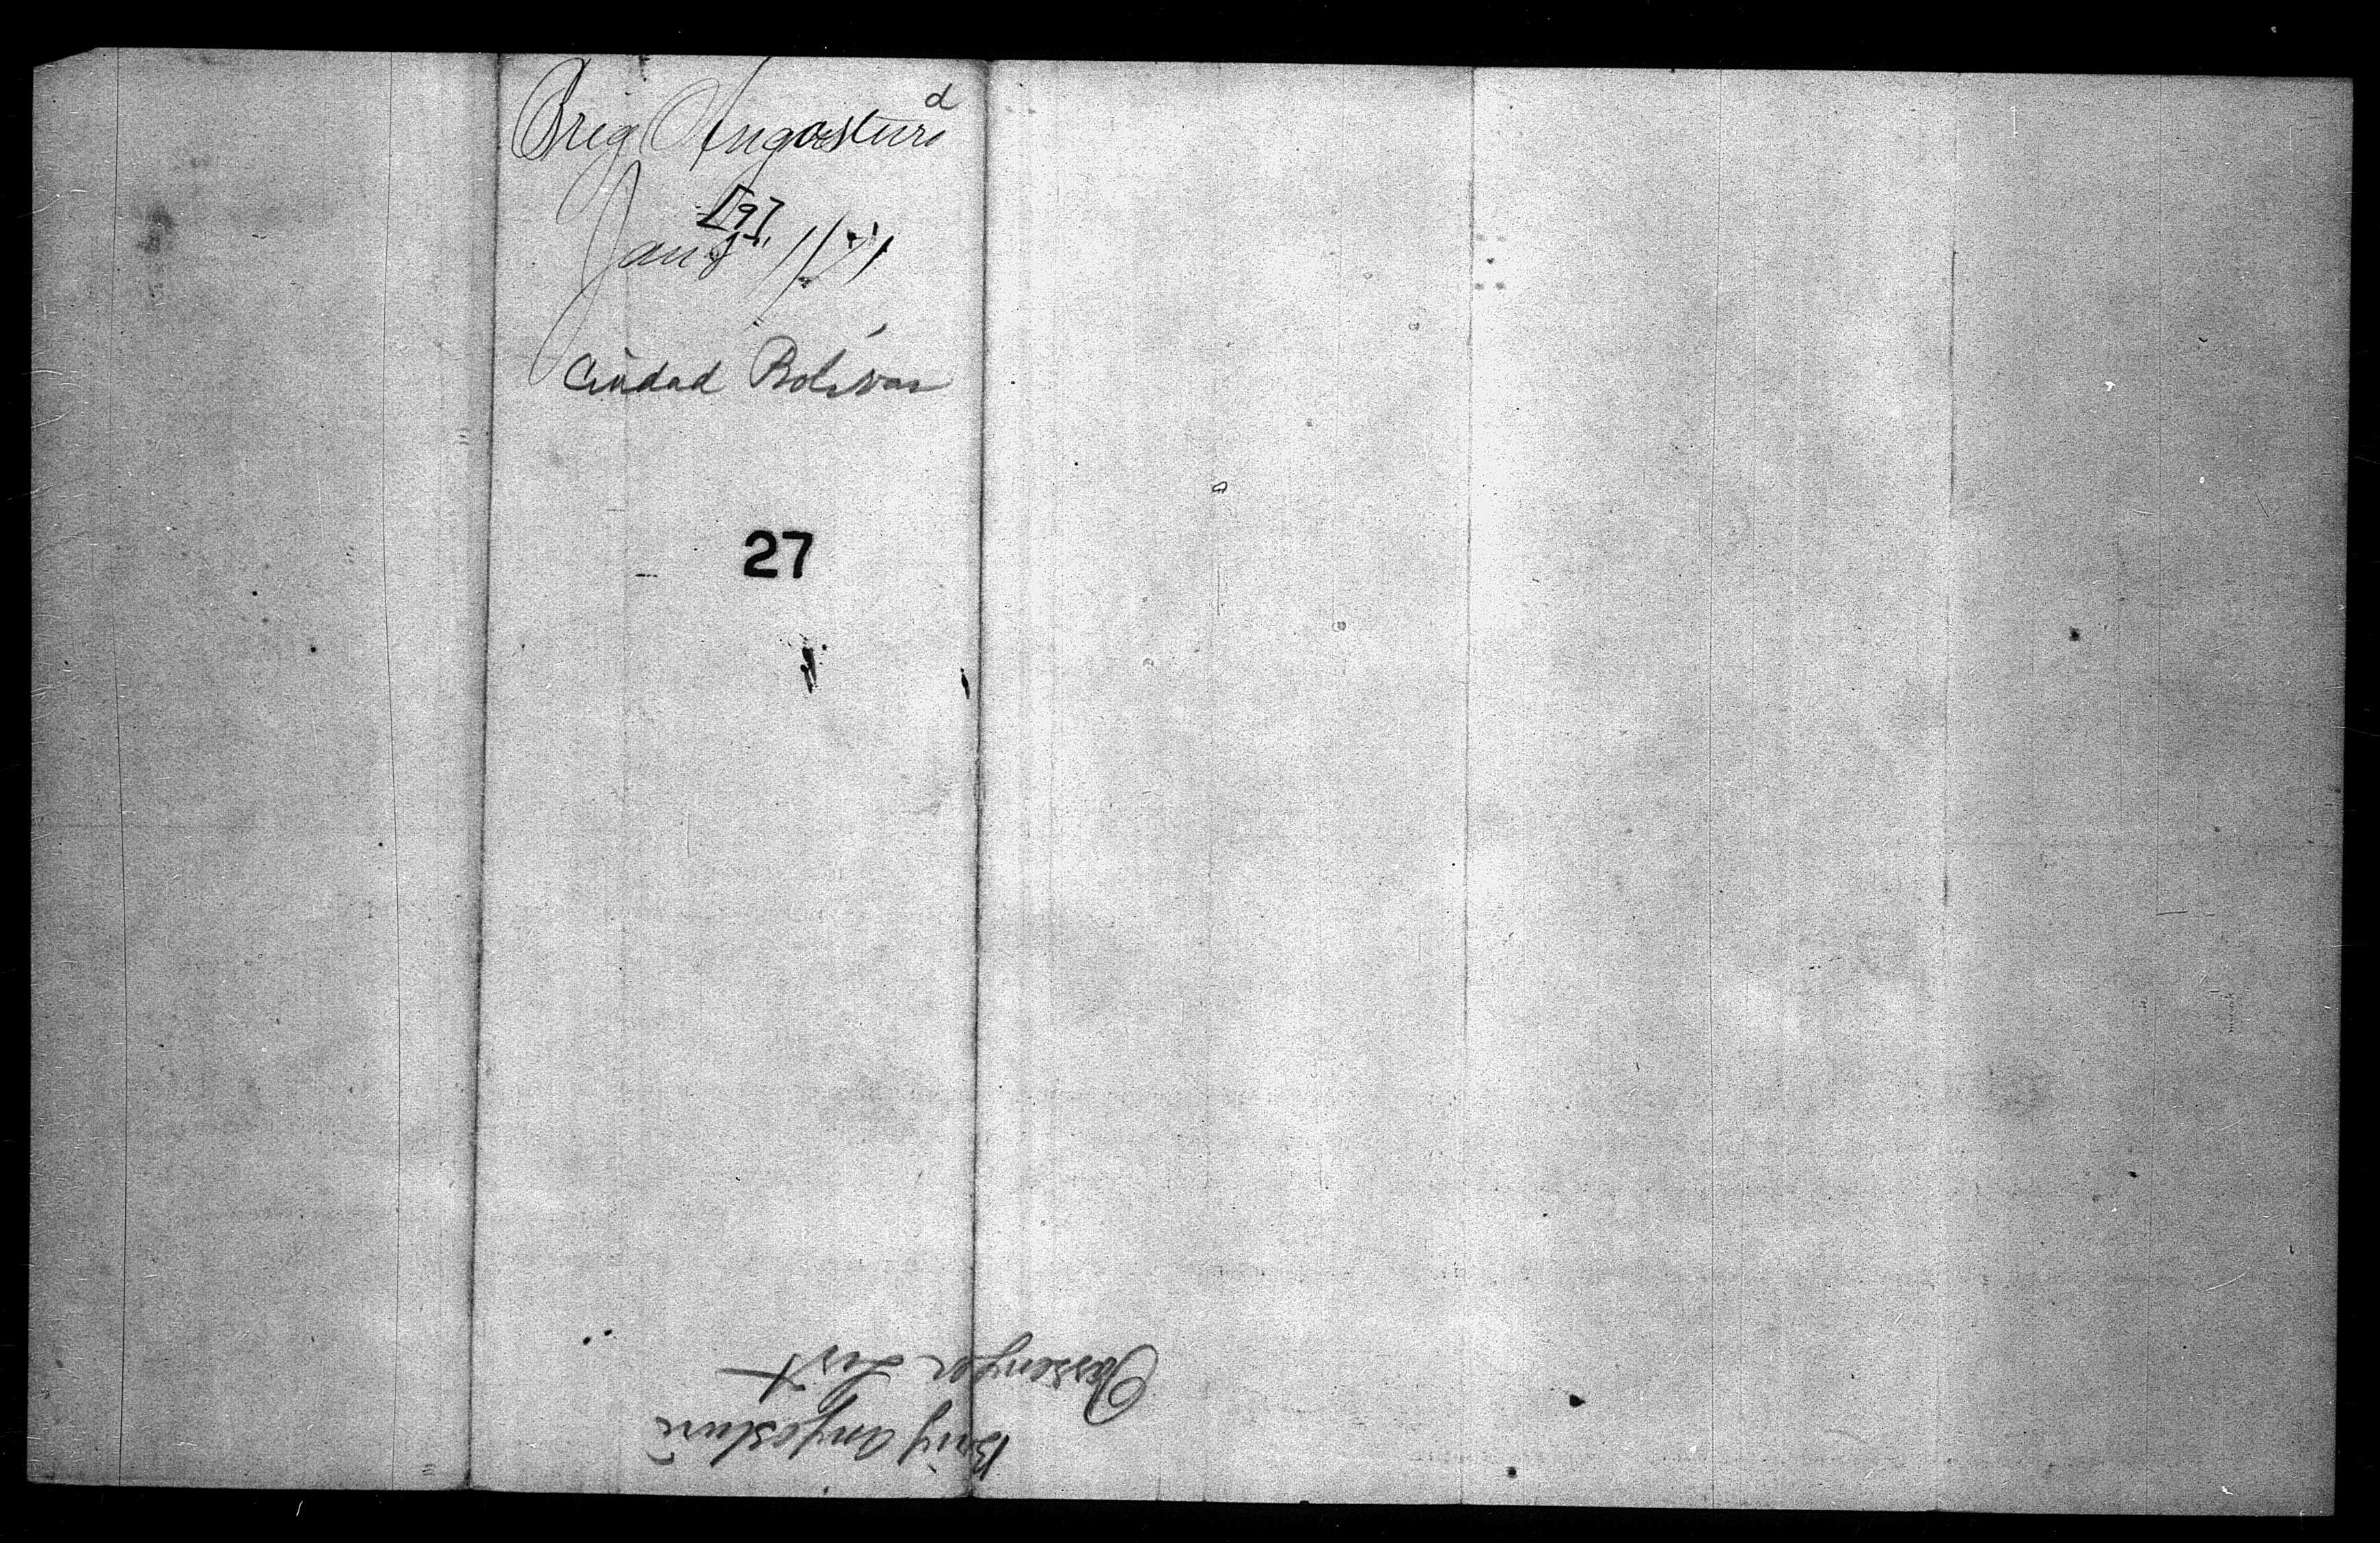 Brig Angostura
[9]
Jan
Ciudad Bolívar
27
Brig Angostura
Passenger List